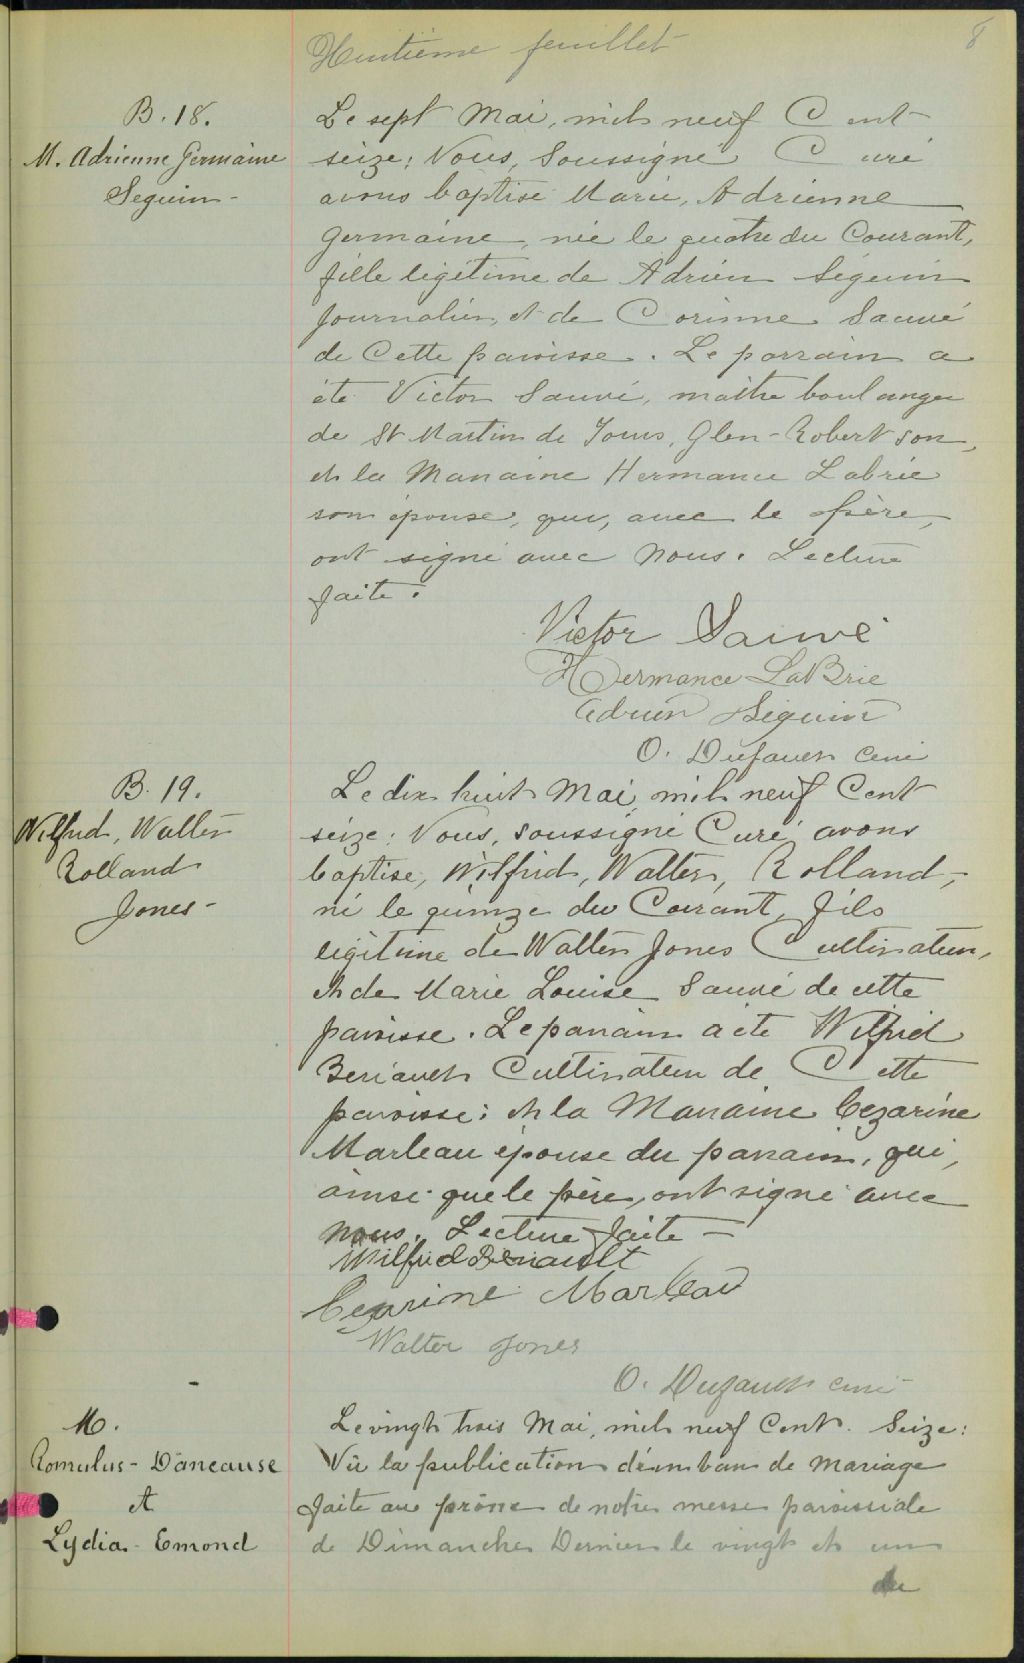 Huitième feuillet
8
B. 18.
M. Adrienne Germaine
Seguin -
Le sept Mai, mil neuf Cent
seize; Nous, Soussigné Curé
avons baptisé Marie, Adrienne
Germaine, née le quatre du Courant,
fille légitime de Adrien Séguin
Journalier, et de Corinne Sauvé
de Cette paroisse. Le parrain a
été Victor Sauvé, maître boulanger
de St Martin de Tours, Glen-Robertson,
et la Marraine Hermance Labrie
son épouse, qui, avec le père,
ont signé avec nous. Lecture
faite.
Victor Sauvé
Hermance LaBrie
Adrien Séguin
O. Dufault curé
B. 19.
Wilfrid, Walter
Rolland
Jones -
Le dix huit Mai, mil neuf Cent
seize; Nous, soussigné Curé, avons
baptisé, Wilfrid, Walter, Rolland,
né le quinze du Courant, fils
légitime de Walter Jones Cultivateur,
et de Marie Louise Sauvé de cette
paroisse. Le parrain a été Wilfrid
Beriault Cultivateur de Cette
paroisse; et la Marraine Cezarine
Marleau épouse du parrain, qui,
ainsi que le père, ont signé avec
nous. Lecture faite -
Wilfrid Beriault
Cezarine Marleau
Walter Jones
O. Dufault curé
M.
Romulus - Dancause
et
Lydia - Emond
Le vingt trois Mai, mil neuf Cent. Seize:
Vu la publication d'un ban de mariage
faite au prône de notre messe paroissiale
de Dimanche Dernier le vingt et un
du